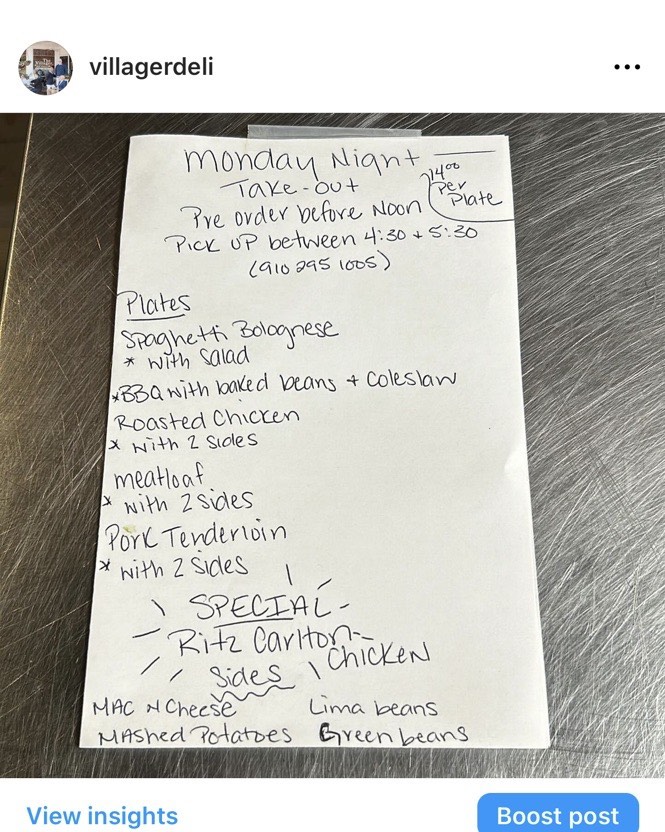 villagerdeli
Monday Night
Take-out
14.00
Per
Plate
Pre order before Noon
Pick up between 4:30 + 5:30
(910 295 1005)
Plates
Spaghetti Bolognese
* with Salad
*BBQ with baked beans + Coleslaw
Roasted Chicken
* with 2 sides
meatloaf
* with 2 sides
Pork Tenderloin
* with 2 sides
SPECIAL
Ritz Carlton
Chicken
Sides
MAC N Cheese
Lima beans
MAshed Potatoes
Green beans
View insights
Boost post